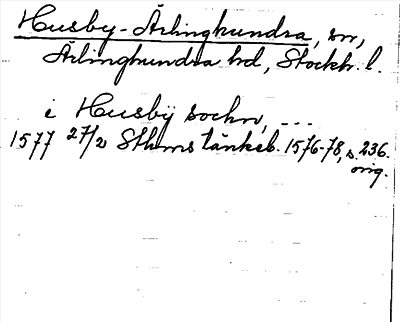 Husby-Ärlinghundra, sn,
Ärlinghundra hd, Stockh. l.
i Husbÿ sochn, ...
1577 27/2 Sthms tänkeb. 1576-78, s. 236.
orig.